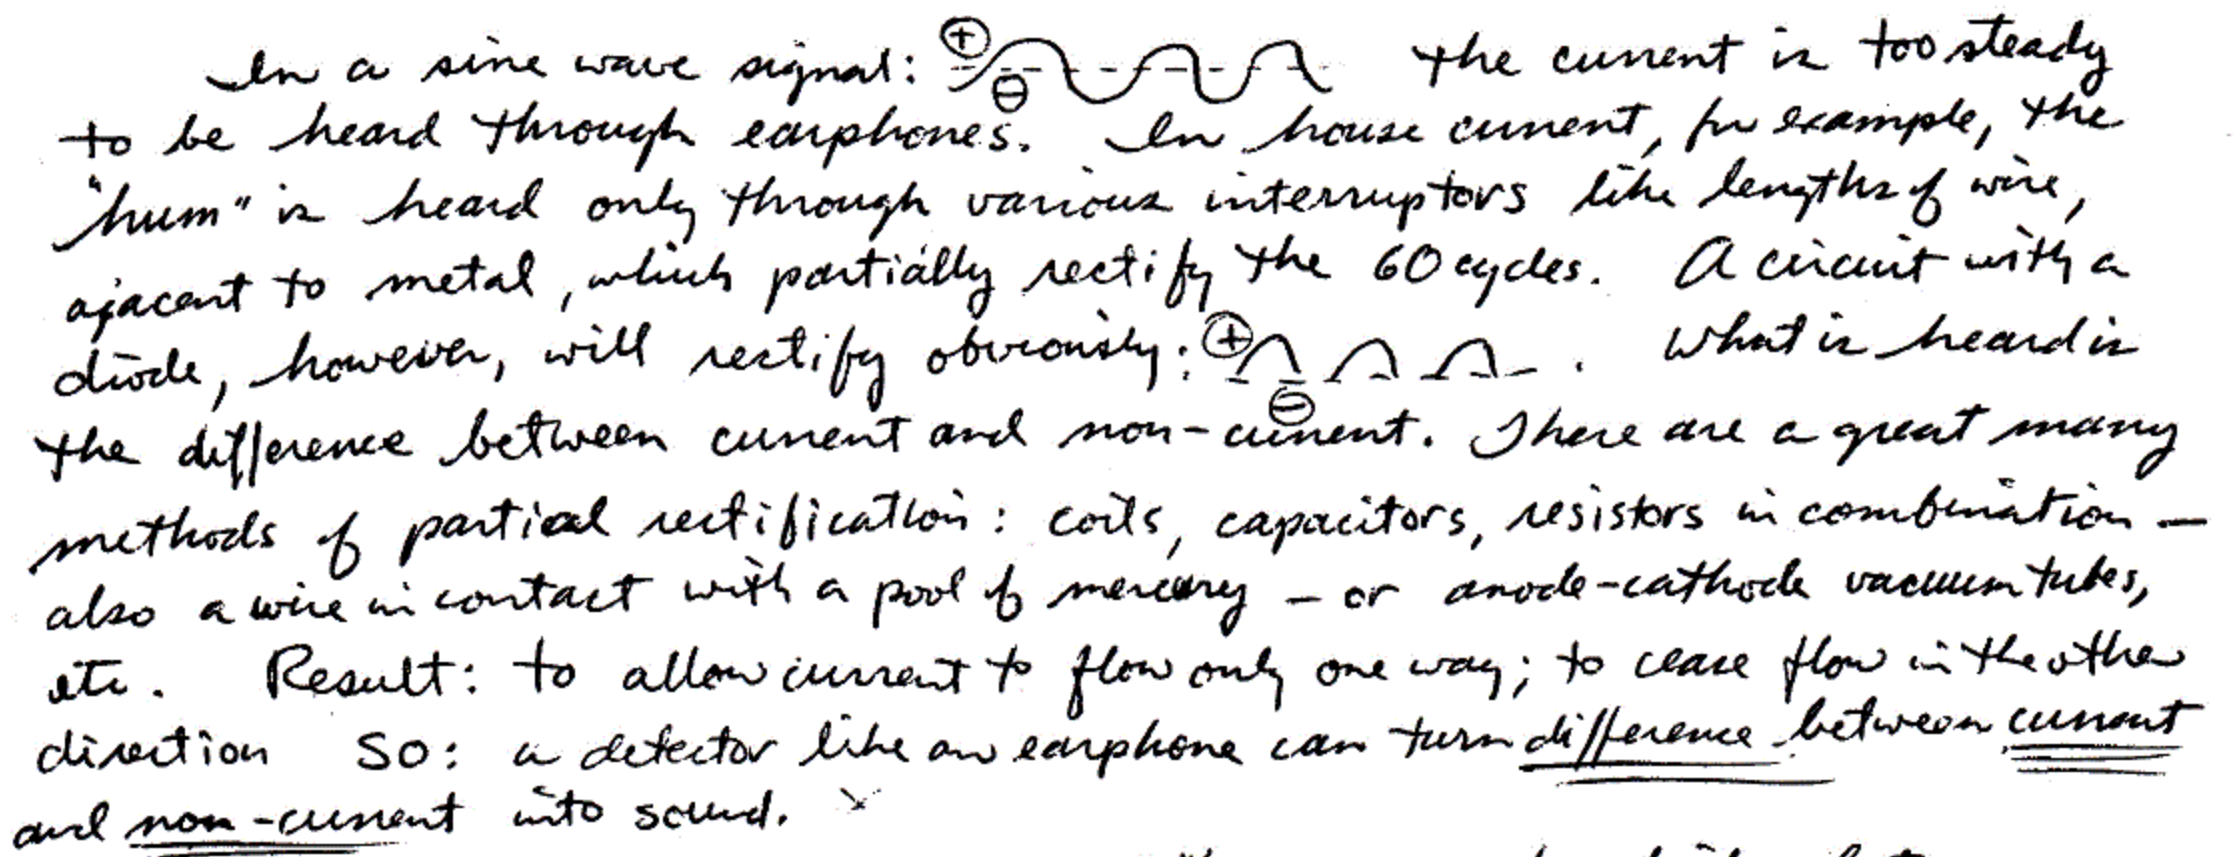 In a sine wave signal: ⊕ ⊖ the current is too steady
to be heard through earphones. In house current, for example, the
"hum" is heard only through various interruptors like lengths of wire,
ajacent to metal, which partially rectify the 60 cycles. A circuit with a
diode, however, will rectify obviously: ⊕ ⊖ . What is heard is
the difference between current and non-current. There are a great many
methods of partical rectification: coils, capacitors, resistors in combination —
also a wire in contact with a pool of mercury — or anode-cathode vacuum tubes,
etc. Result: to allow current to flow only one way; to cease flow in the other
direction SO: a detector like an earphone can turn difference between current
and non-current into sound.